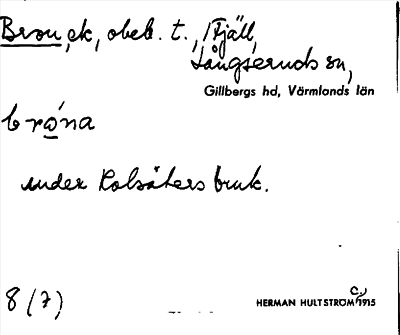 Bron, ek, obeb. t., Fjäll,
Långseruds sn,
Gillbergs hd, Värmlands län
bróna
under Kolsäters bruk.
8 (7)
HERMAN HULTSTRÖM C., 1915